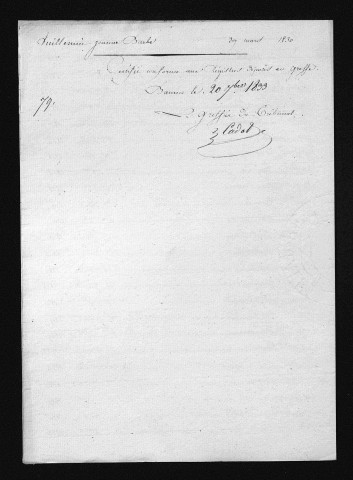 Guillemin Jeanne Barbe du mars 1830
Certifié conforme aux registres déposés au greffe
Baume le 20 9bre 1833
79.
Le greffier du Tribunal
Cadot